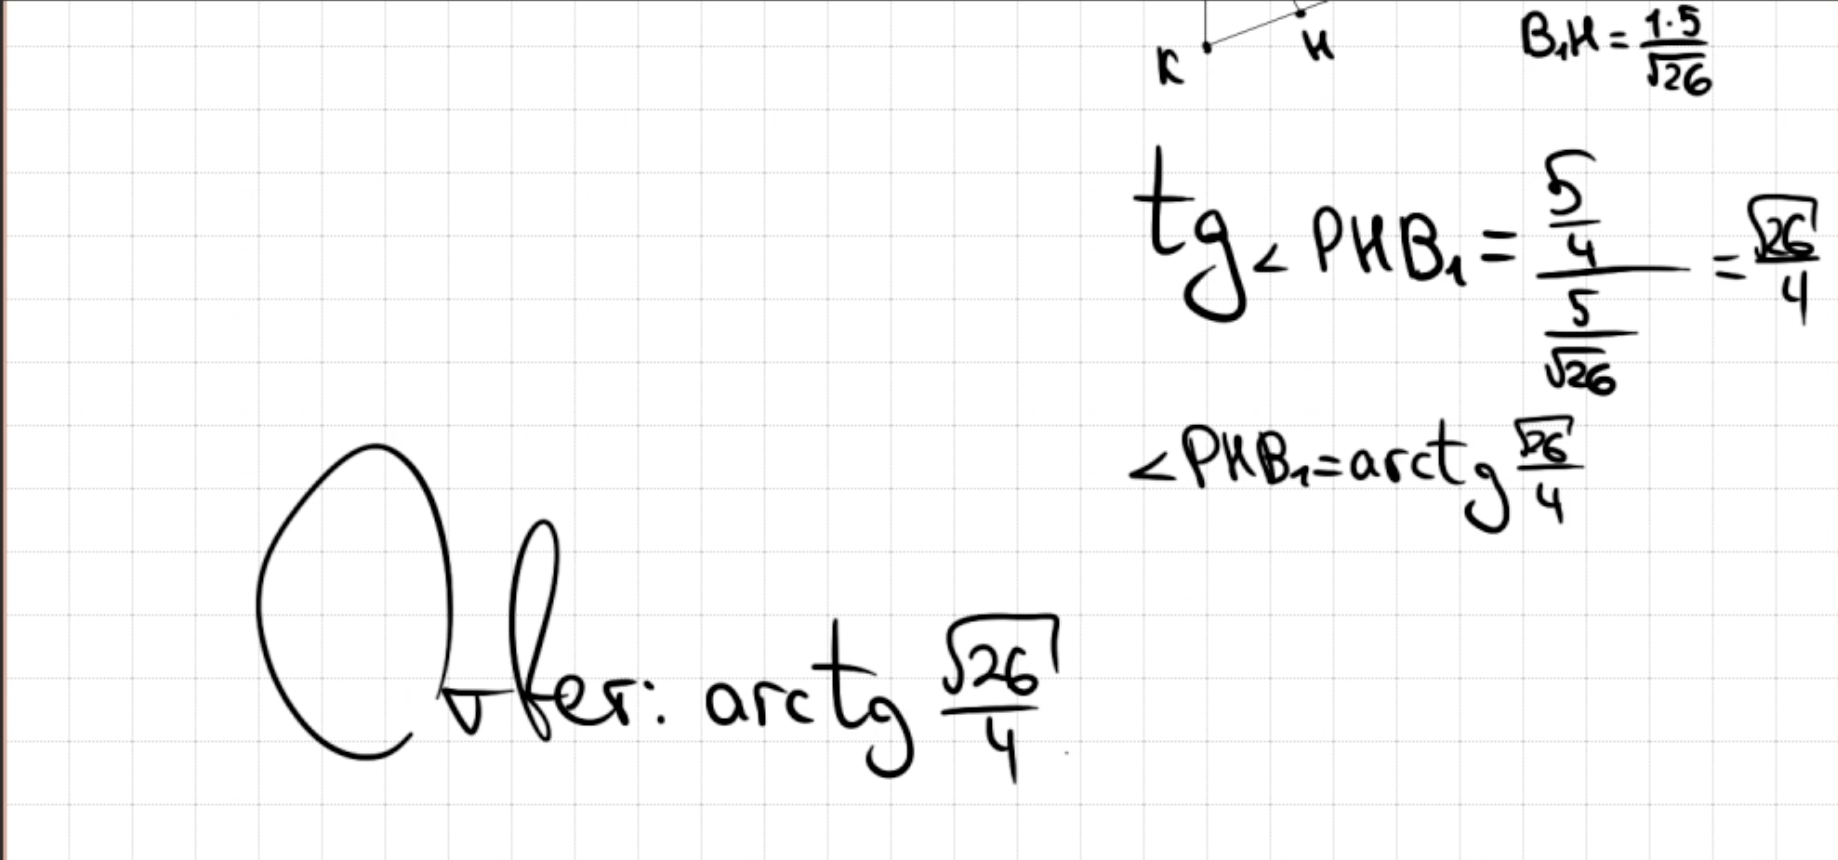 K
H
B₁H = 1·5/√26
tg ∠ PHB₁ = (5/4)/(5/√26) = √26/4
∠PHB₁ = arctg √26/4
Ответ: arctg √26/4